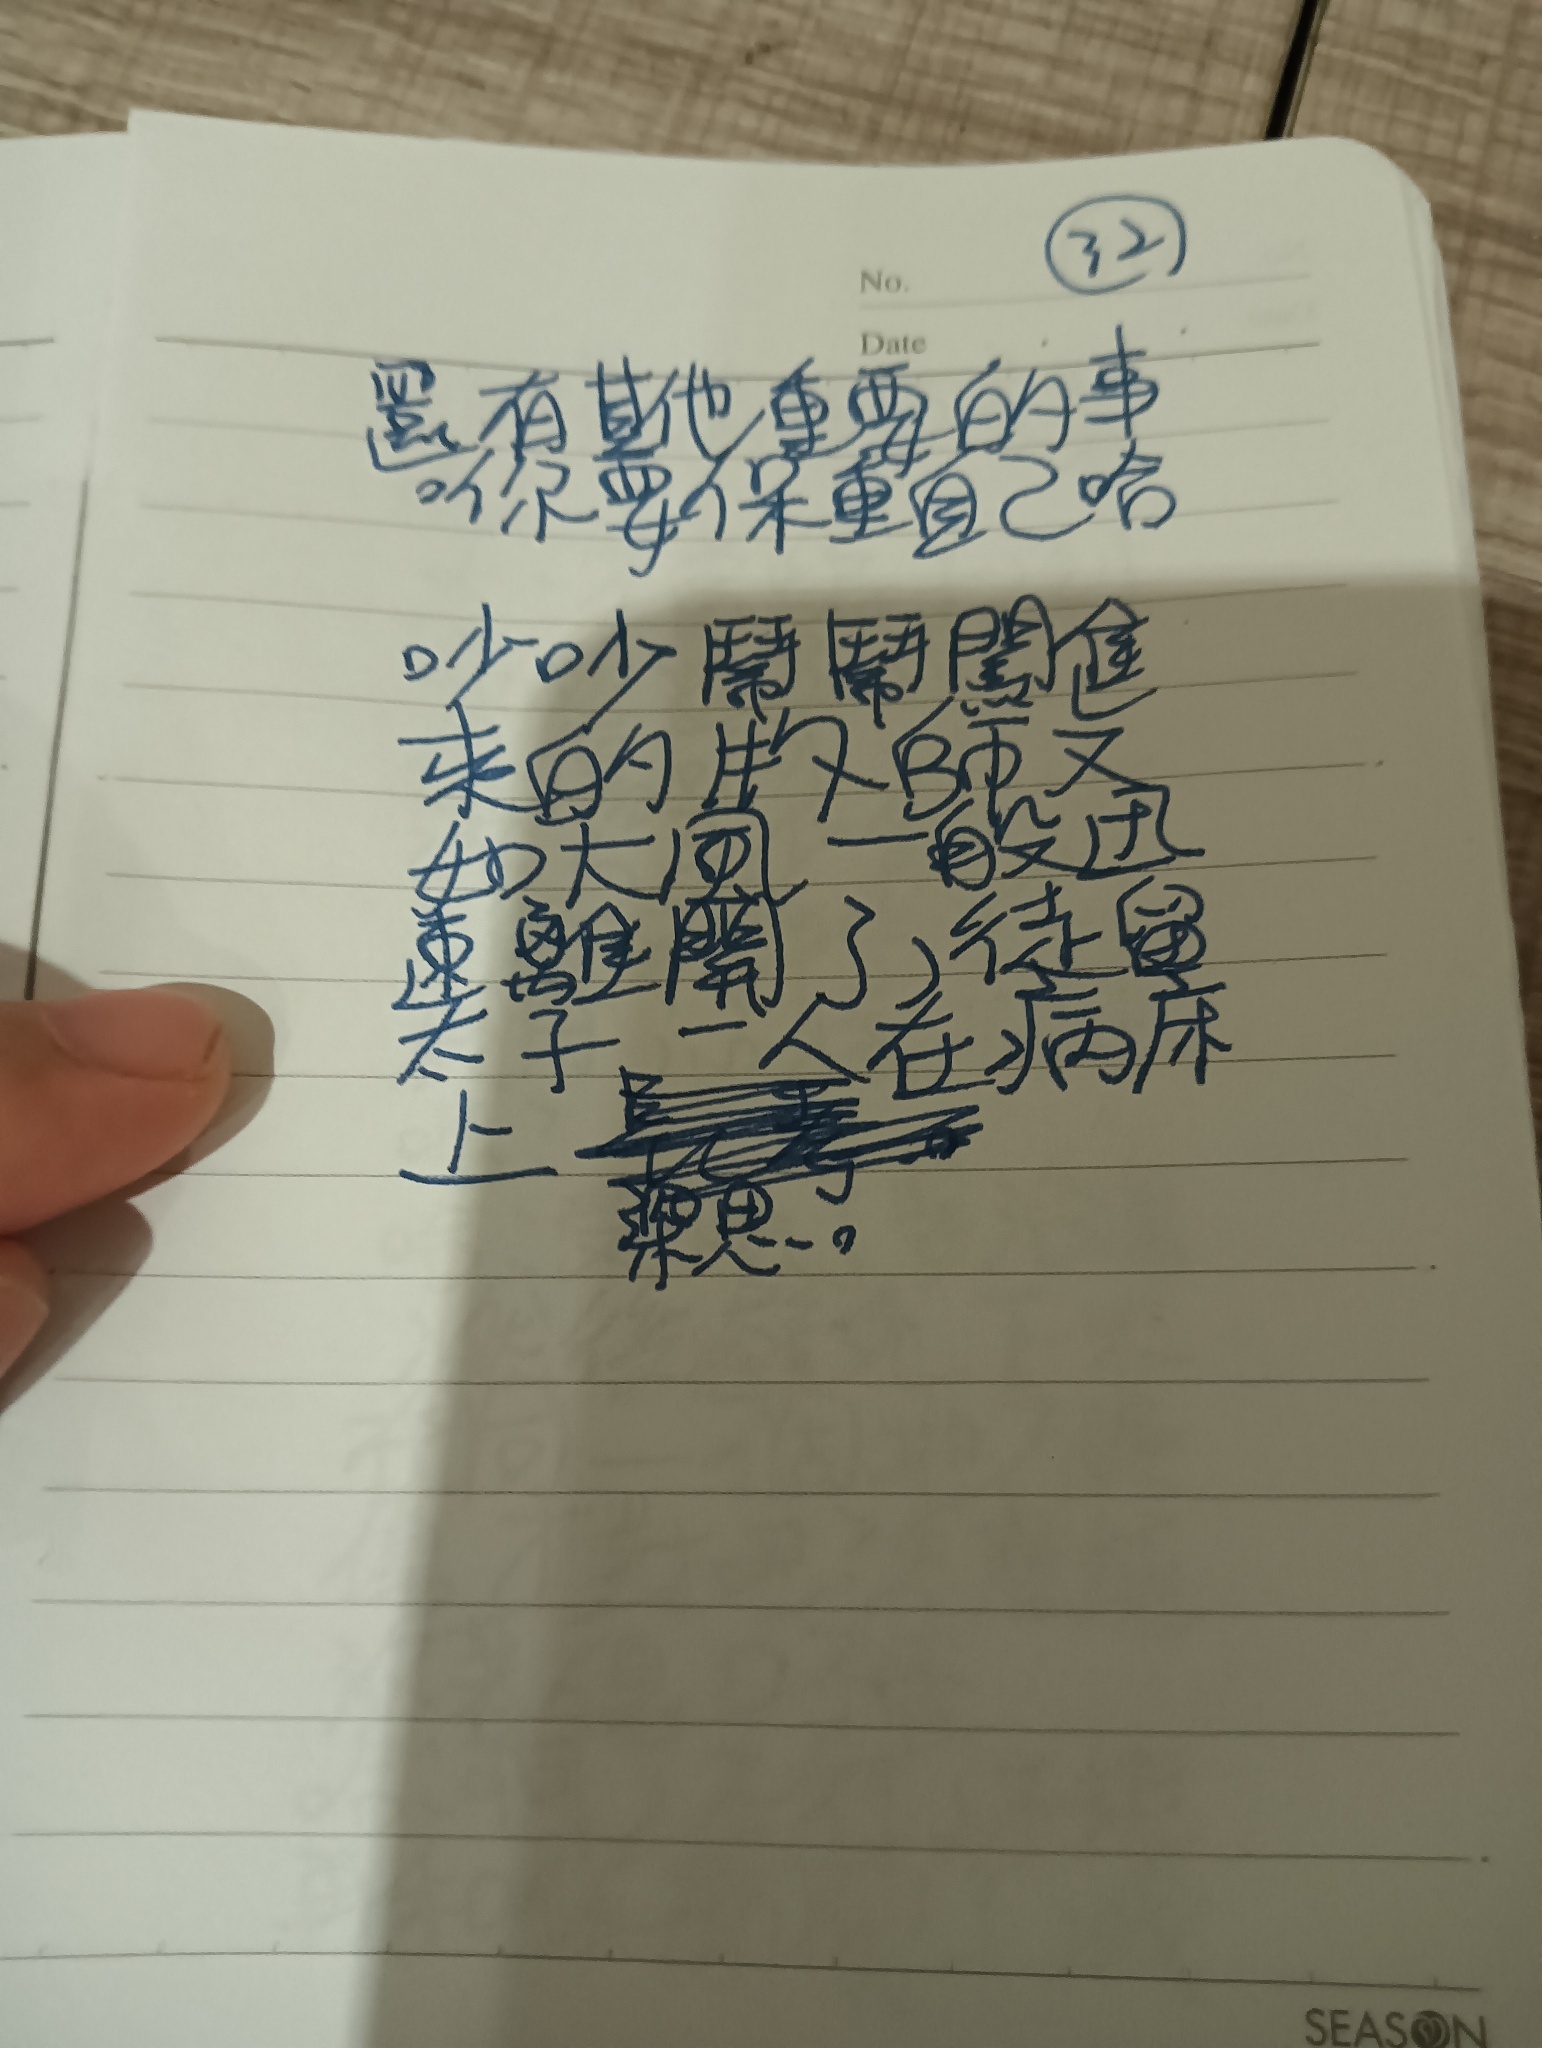 32
No.
Date
還有其他重要的事
你要保重自己哈
吵吵鬧鬧闖進
來的牧師又
如大風一般迅
速離開了,徒留
太子一人在病床
上
深思。
SEASON